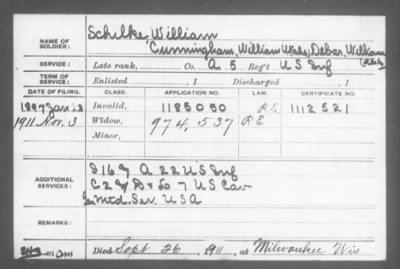 NAME OF SOLDIER: Schilke, William
Cunningham, William (Alias), Debar, William (Alias)
SERVICE: Late rank, Co. A 5 Reg't U S Inf
TERM OF SERVICE: Enlisted , 1 Discharged , 1
DATE OF FILING. CLASS. APPLICATION NO. LAW. CERTIFICATE NO.
1897 Jan Invalid, 1185050 R.E. 1112521
1911 Nov. 3 Widow, 974,537 R.E.
Minor,
ADDITIONAL SERVICES: A 22 U S Inf
7 U S Cav
U S A
REMARKS:
Died Sept 26, 1911, at Milwaukee Wis